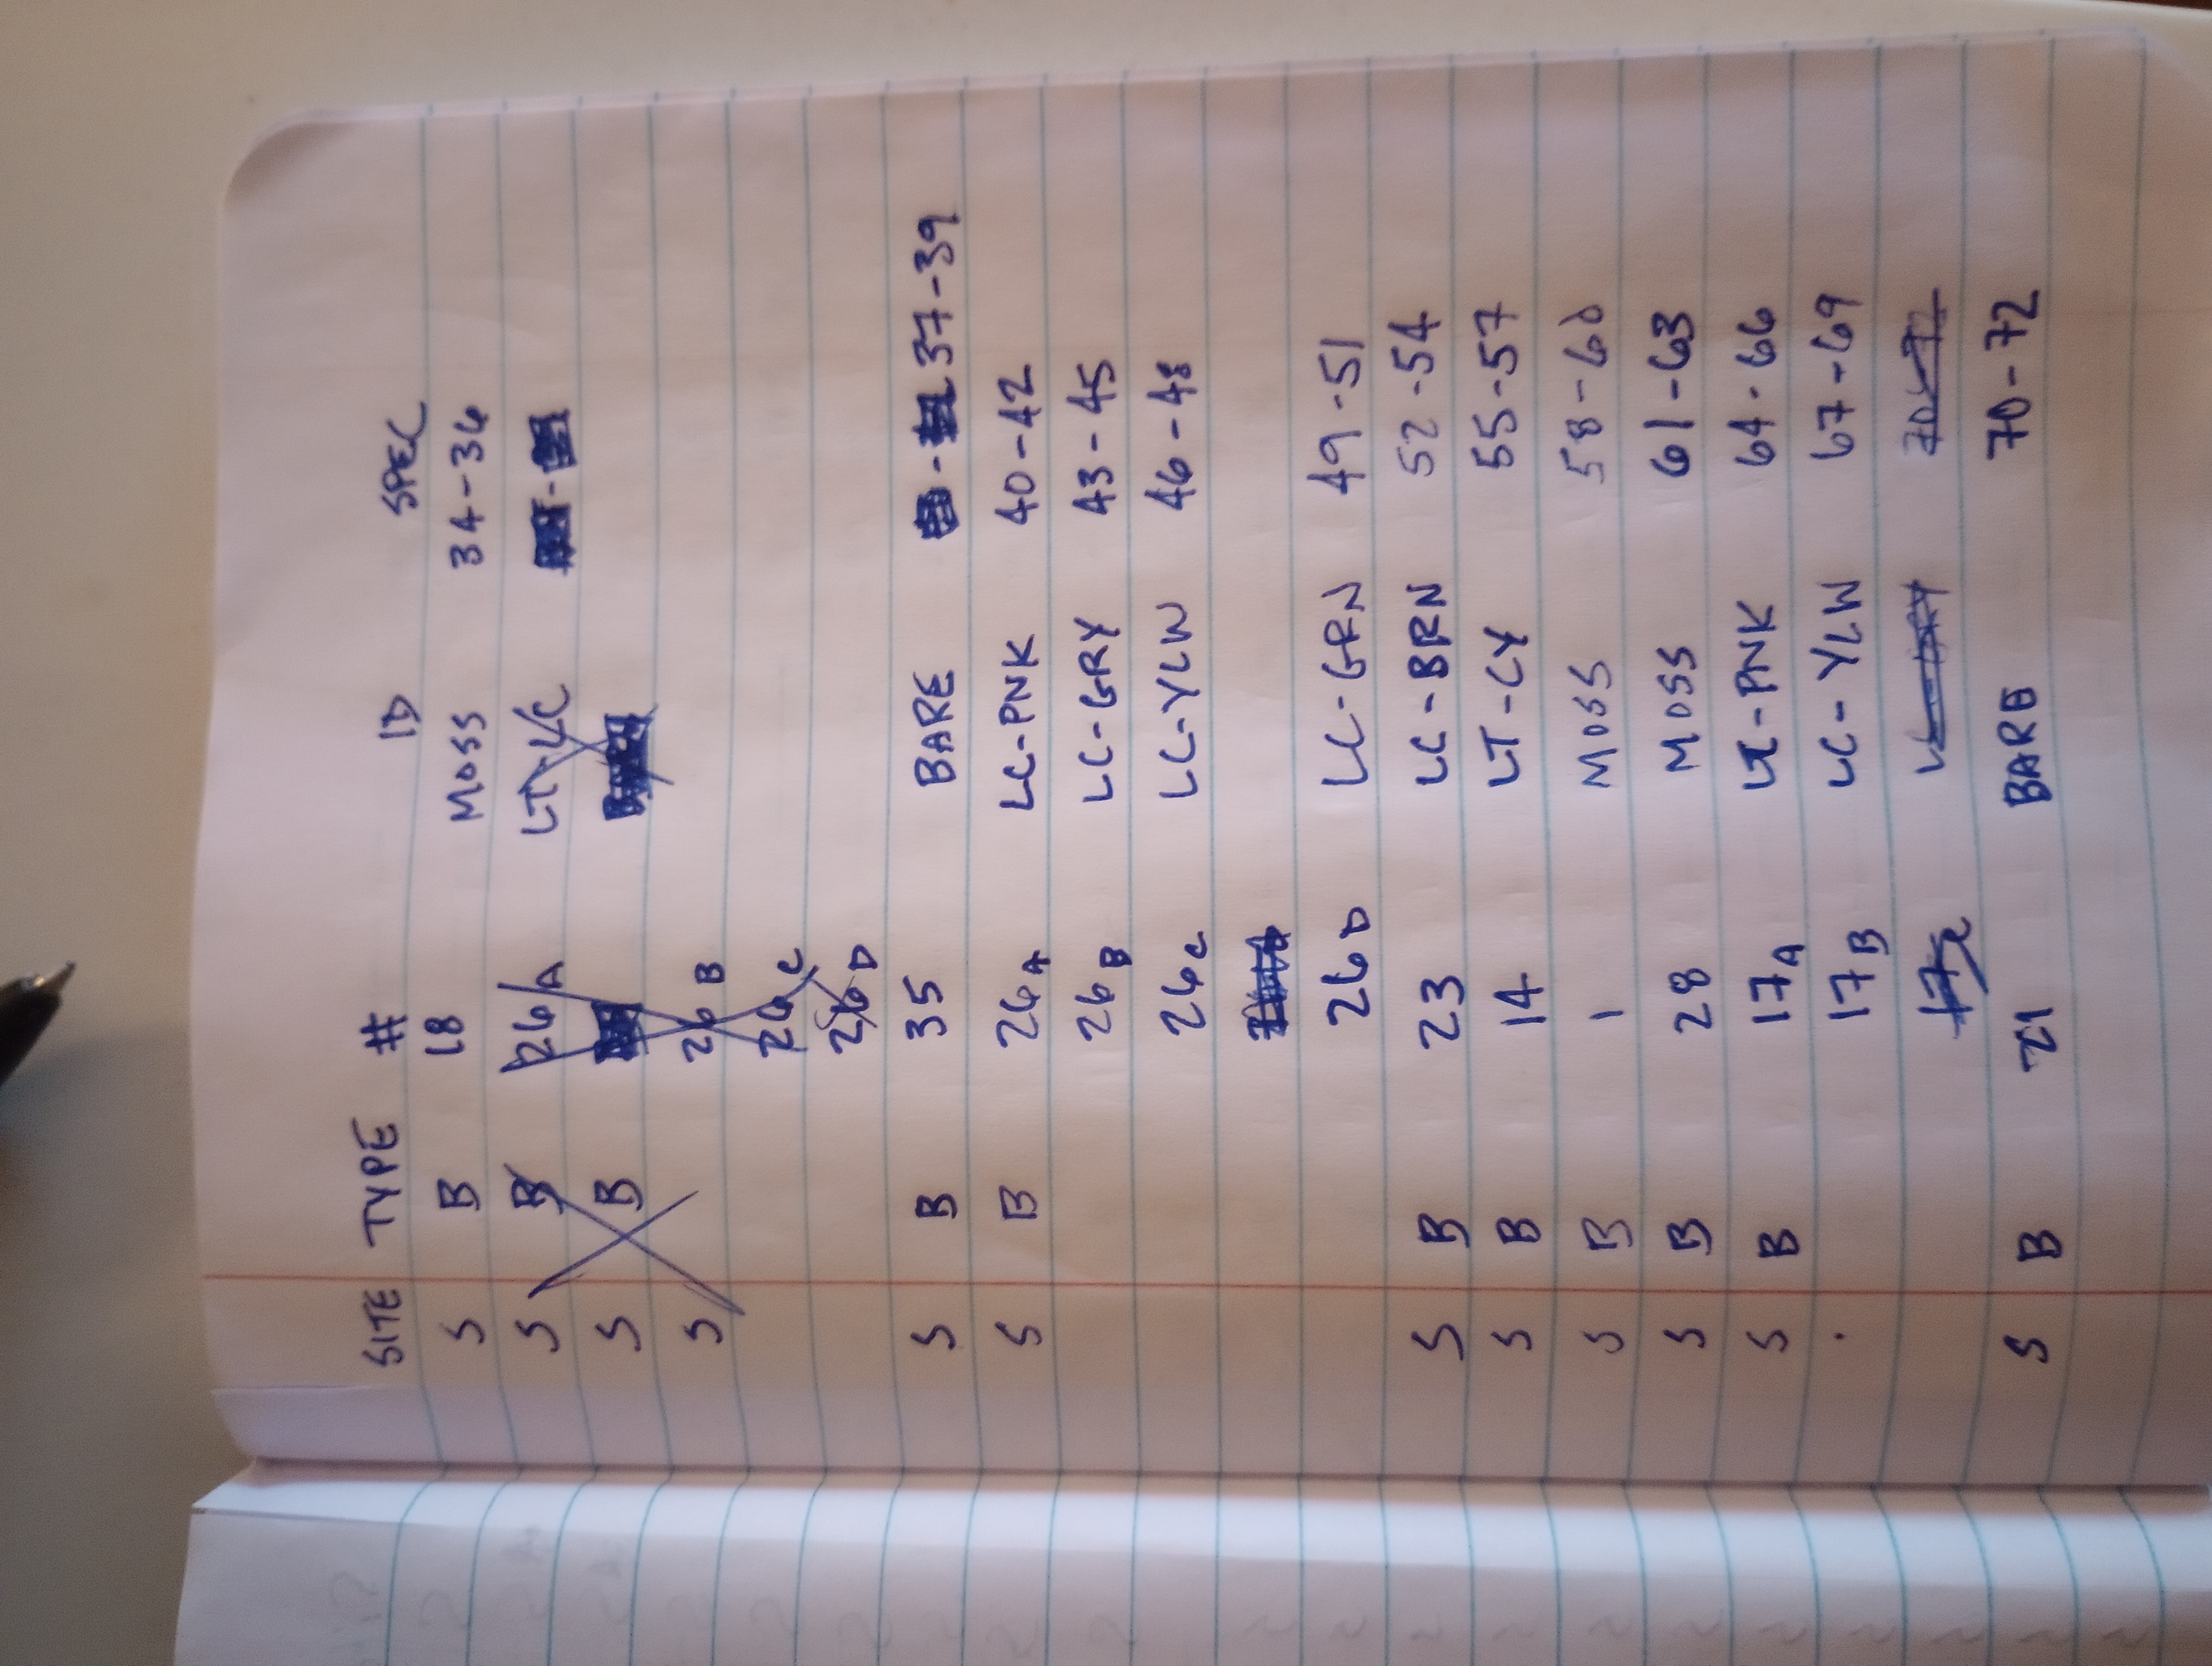 SITE TYPE # ID SPEC
S B 18 MOSS 34-36
S B 26A LT-LC
S B
S 26 B
26 C
26 D
S B 35 BARE 37-39
S B 26A LC-PNK 40-42
26B LC-GRY 43-45
26C LC-YLW 46-48
26D LC-GRN 49-51
S B 23 LC-BRN 52-54
S B 14 LT-CY 55-57
S B 1 MOSS 58-60
S B 28 MOSS 61-63
S B 17A LC-PNK 64-66
17B LC-YLW 67-69
17C 70-72
S B 21 BARE 70-72